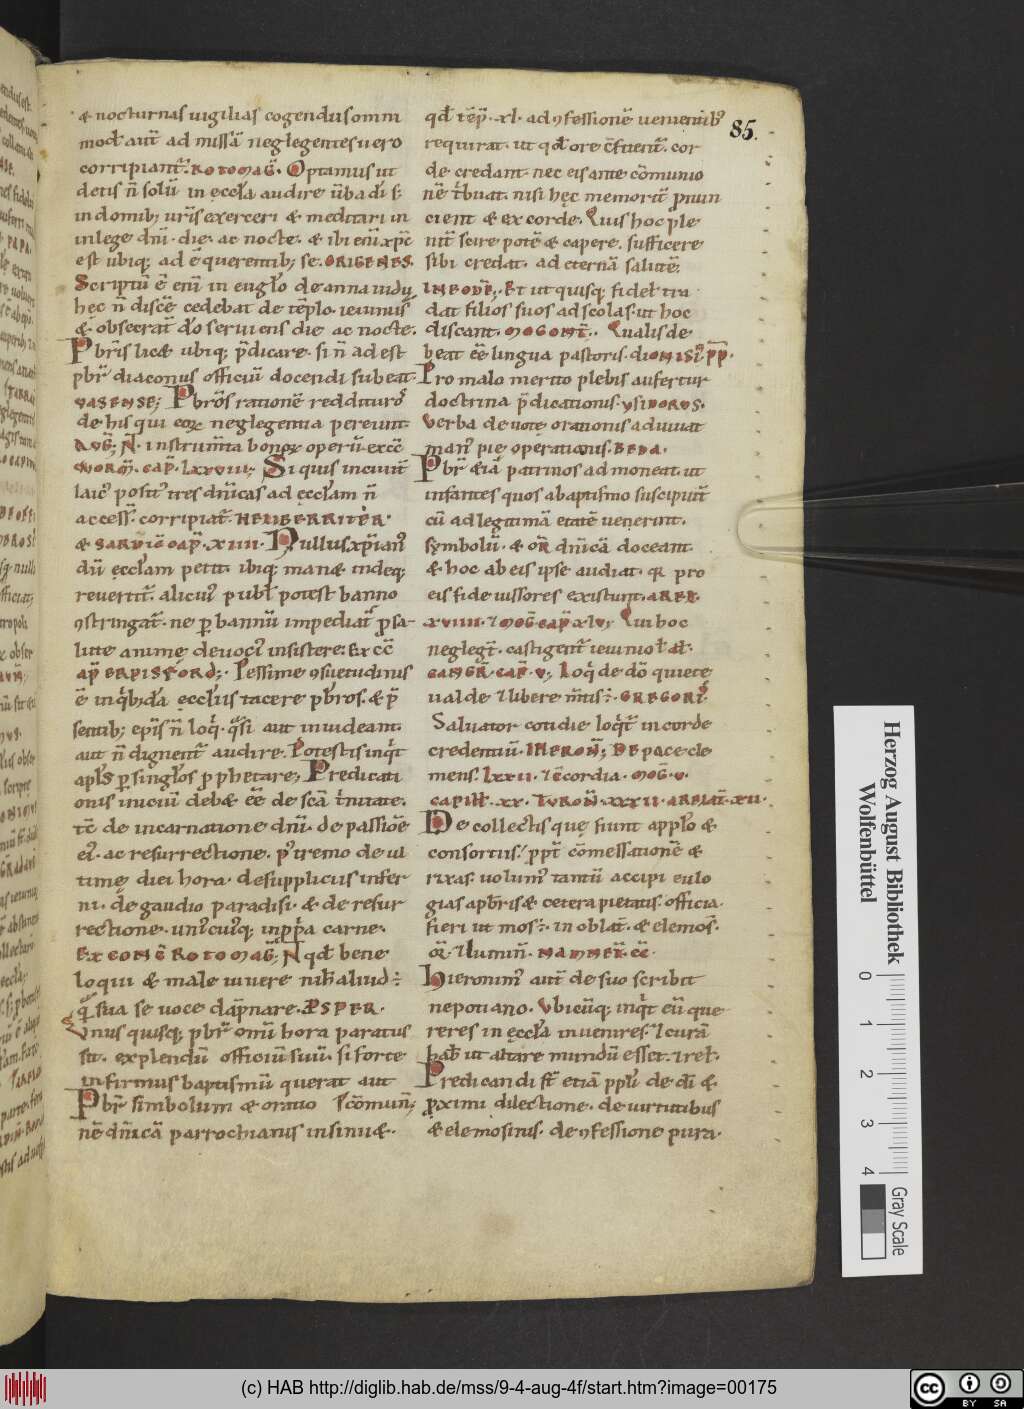 & nocturnas uigilias cogendus omni
mod' aut̄ ad missā neglegentes uero
corripiant̄. ROTOMAG̅. Optamus ut
detis n̄ solū in ęccƚa audire ūba dī s;
in domib; ur̄is exerceri & meditari in
in lege dn̄i. die. ac nocte. & ibi enī xp̄c
est ubiq; ad ē querentib; se. ORIGENES.
Scriptū ē enī in eu̅gƚo de anna uidu
hęc n̄ discē cedebat de tēplo. ieiuniis
& obsecrat̄ dō seruiens die ac nocte.
Pbr̄is licæ ubiq; p̄dicare. si n̄ adest
pbr̄ diaconus officiū docendi subeat.
VASENSE; Pbr̄os rationē reddituros
de his qui eoꝝ neglegentia pereunt.
AUG̅; N̄. instrum̄ta bonoꝝ operū. excē
WORM̅. CAP̄. LXXVIII; Si quis inciuit̄
laic' posit' tres dn̄icas ad ęccƚam n̄
access̄. corripiat̄.
& SARDIC̄ CAP̄. XIIII. Nullus xp̄ian'
dū ęccƚam petit. ibiq; manæ indeq;
reuertit̄. alicui' publ' potest banno
ꝯstringat̄. ne ꝑ bannū impediat̄ ꝓ sa-
lute animę deuoci' insistere. EX CC̄
Pessime ꝯsuetudinis
ē inq'bdā ęccƚiis tacere pbr̄os. & p̄
sentib; epīs n̄ loq'. q̄si aut inuideant.
aut n̄ dignent̄ audire. Potestis inq't
apl̄s ꝑ singƚos ꝓphetare; Predicati
onis inciuī debæ ēē de scā t'nitate.
tē de incarnatione dn̄i. de passiōe
ei'. ac resurrectione. p't̄remo de ul
timę diei hora. de suppliciis infer
ni. de gaudio paradisi. & de resur
rectione. uni'cui'q; in pp̄a carne.
EX CONC̄ ROTOMAG̅; N̄ qd' bene
loqui & male uiuere nih̄ aliud ÷
q̄ sua se uoce dāpnare. PSPER.
Vnus quisq; pbr̄ om̄ī hora paratus
sit. explendū officiū suū. si forte
infirmus baptismū querat aut
Pbr̄ simbolum & oratio ⁊ cōmun̄;
nē dn̄icā parrochianis insinuæ.
qd' tēp̄. xl. ad ꝯfessionē uenientib'
85.
requirat. ut qd' ore ꝯfitent̄. cor
de credant. nec eis ante cōmunio
nē t'buat. nisi hęc memorit̄ ꝓnun
cient & ex corde. Quis hoc ple
nit̄ scire potē & capere. sufficere
sibi credat. ad eternā salutē.
IN EODĒ; Et ut quisq; fidel' tra
dat filios suos ad scolas. ut hoc
discant. MOGONT̄.. Qualis de
beat ēē lingua pastoris. DIONISI' PP̄.
Pro malo merito plebis aufertur
doctrina p̄dicationis. YSIDORVS.
Verba deuotę orationis adiuuat
man' pię operationis. BEDA.
Pbr̄ &iā patrinos admoneat. ut
infantes quos abaptismo suscipiūt
cū ad legitimā etatē uenerint.
symbolū. & or̄ dn̄icā doceant.
& hoc ab eis ipse audiat. qr pro
eis fide iussores existunt. AREL̄.
XVIIII. ⁊ MOG̅ CAP̄ XLV; Qui hoc
neglegt̄. castigent̄ ieiunio ł aƚ.
GANGR̄. CAP̄. V; Loq' de dō quiete
ualde ⁊ libere m̄tis ÷. GREGORI'.
Saluator cotidie loq't̄ in corde
credentiū. IHERON̄; DE pace cle
mens. LXXII. ⁊ c̄cordia. MOG̅. V.
CAPITƚ. XX. TVRON̄. XXXII. ARELAT̄. XII.
De collectis quę fiunt app̄lo &
consortiis. ppt̄ cōmessationē &
rixas. uolum' tantū accipi eulo
gias a pbr̄is & cetera pietatis officia.
fieri ut mos ÷. in oblat̄. & elemos̄.
or̄. ⁊ llumin̄. NAMNET̄. CC̄.
Hieronim' aut̄ de suo scribit
nepotiano. Vbicūq; inq't eū que
reres in ęccƚa inuenires. ⁊ curā
hab' ut altare mundū esset. ⁊ rel'.
Predicandi s̄t etiā ppl̄i de dī &
ꝓximi dilectione. de uirtutibus
& elemosinis. de ꝯfessione pura.
Herzog August Bibliothek
Wolfenbüttel
0
1
2
3
4
Gray Scale
(c) HAB http://diglib.hab.de/mss/9-4-aug-4f/start.htm?image=00175
cc
BY SA